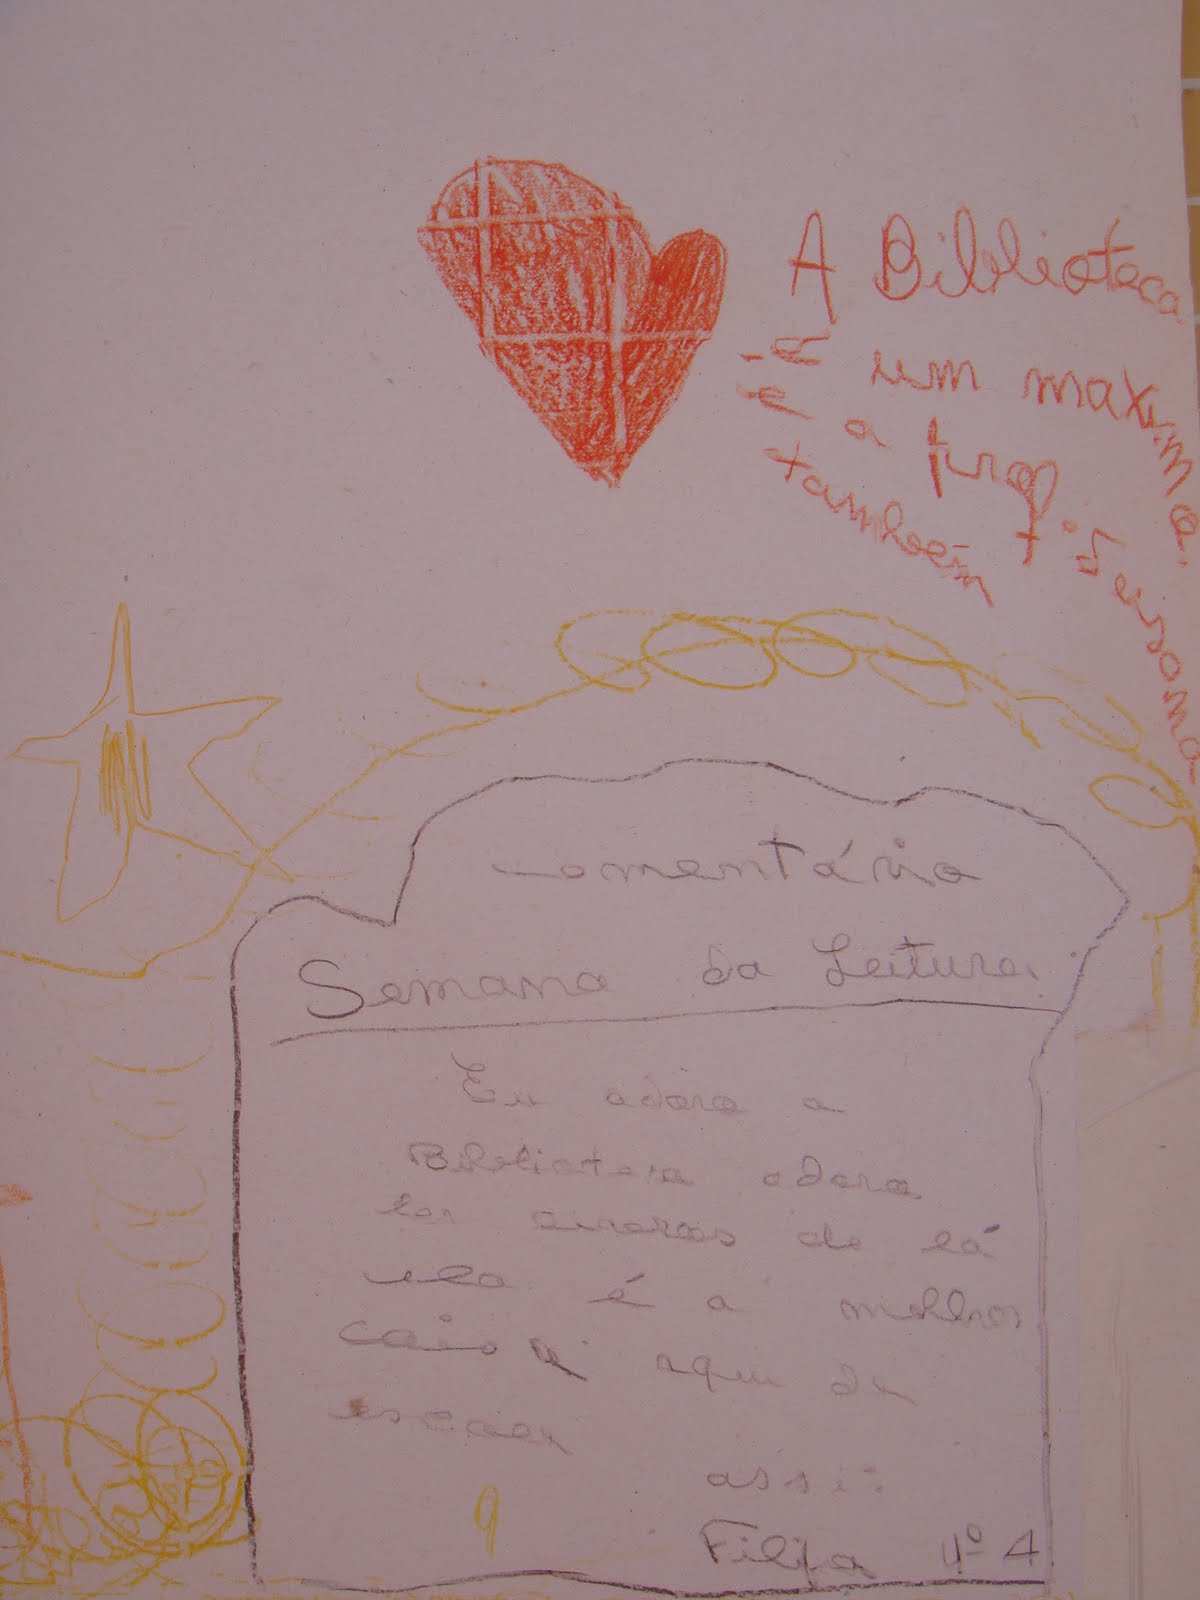 A Biblioteca
é um maxima.
é a prof.
também
Comentário
Semana da Leitura
Eu adoro a
Biblioteca adoro
ler livros de lá
ela é a melhor
coisa aqui da
escola
ass:
Filipa 4º A